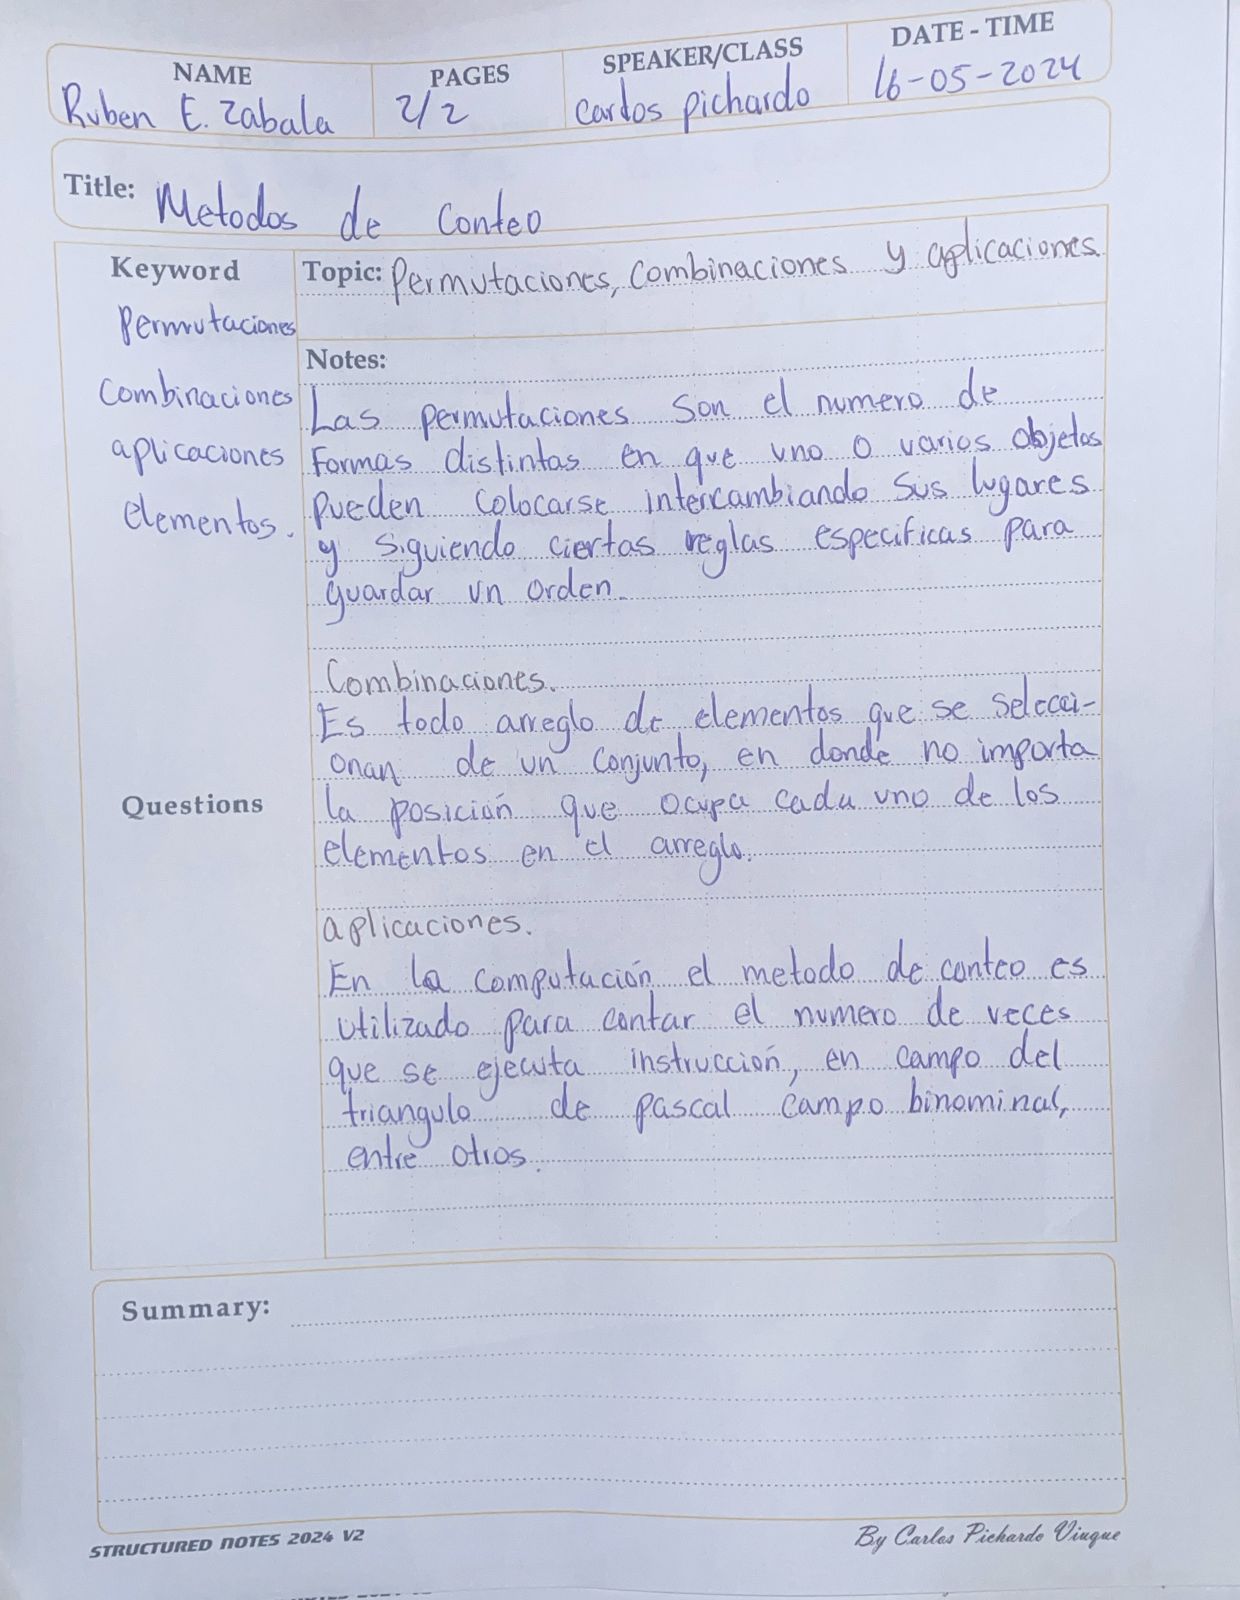 NAME PAGES SPEAKER/CLASS DATE - TIME
Ruben E. Zabala 2/2 Carlos pichardo 16-05-2024
Title: Metodos de Conteo
Keyword
Permutaciones
Combinaciones
aplicaciones
elementos.
Questions
Topic: Permutaciones, Combinaciones y aplicaciones.
Notes:
Las permutaciones son el numero de
Formas distintas en que uno o varios objetos
pueden colocarse intercambiando sus lugares
y siguiendo ciertas reglas especificas para
guardar un orden.
Combinaciones.
Es todo arreglo de elementos que se selecci-
onan de un conjunto, en donde no importa
la posición que ocupa cada uno de los
elementos en el arreglo.
aplicaciones.
En la computación el metodo de conteo es
utilizado para contar el numero de veces
que se ejecuta instrucción, en campo del
triangulo de pascal campo binominal,
entre otros.
Summary:
STRUCTURED NOTES 2024 V2 By Carlos Pichardo Viuque